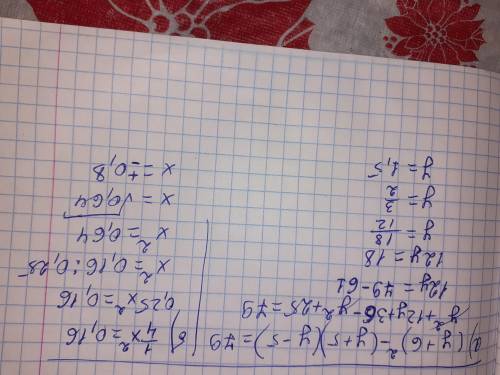 а) (y+6)²-(y+5)(y-5)=79
y²+12y+36-y²+25=79
12y=79-61
12y=18
y=18/12
y=3/2
y=1,5
б) 1/4x²=0,16
0,25x²=0,16
x²=0,16:0,25
x²=0,64
x=√0,64
x=±0,8